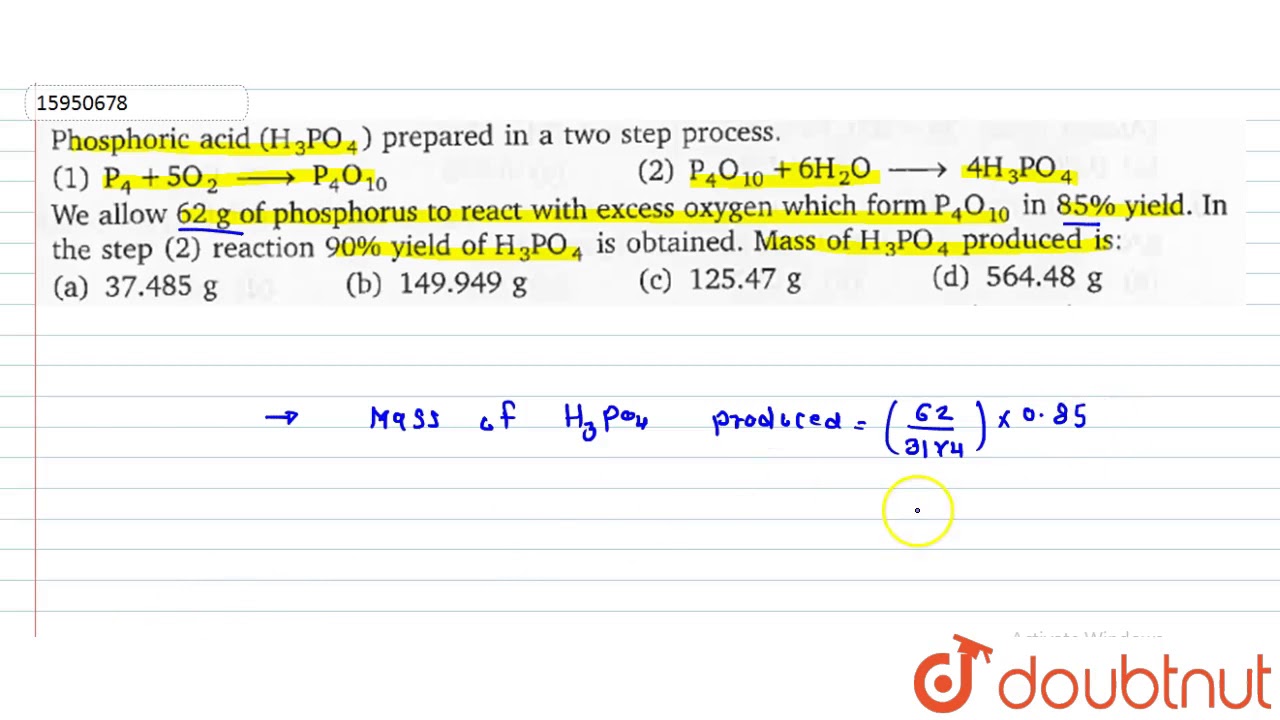 15950678
Phosphoric acid (H₃PO₄) prepared in a two step process.
(1) P₄ + 5O₂ ⟶ P₄O₁₀ (2) P₄O₁₀ + 6H₂O ⟶ 4H₃PO₄
We allow 62 g of phosphorus to react with excess oxygen which form P₄O₁₀ in 85% yield. In
the step (2) reaction 90% yield of H₃PO₄ is obtained. Mass of H₃PO₄ produced is:
(a) 37.485 g (b) 149.949 g (c) 125.47 g (d) 564.48 g
→ Mass of H₃PO₄ produced = (62/31×4) × 0.85
Activate Windows
doubtnut